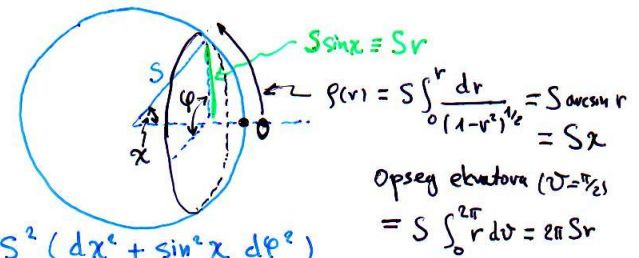 S sinχ ≡ Sr
S
φ
χ
O
ρ(r) = S ∫₀^r dr / (1-r²)^{1/2} = S arcsin r
= Sχ
Opseg ekvatora (ϑ=π/2)
= S ∫₀^{2π} r dϑ = 2π Sr
S² (dχ² + sin²χ dφ²)